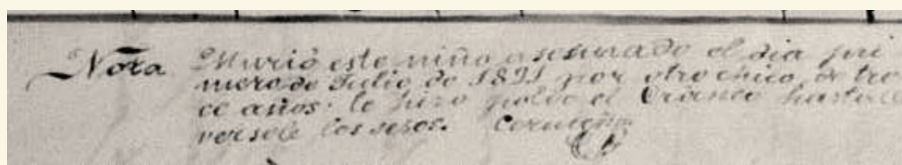 Nota Murió este niño asesinado el dia pri
mero de Julio de 1891 por otro chico de tre
ce años. le hizo polbo el Craneo hasta
versele los sesos. Cermeño